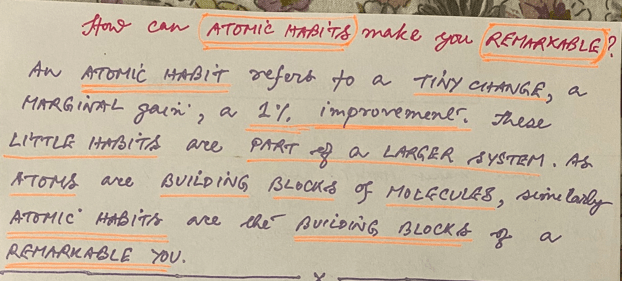 How can ATOMIC HABITS make you REMARKABLE?
An ATOMIC HABIT refers to a TINY CHANGE, a
MARGINAL gain, a 1% improvement. These
LITTLE HABITS are PART of a LARGER SYSTEM. As
ATOMS are BUILDING BLOCKS of MOLECULES, similarly
ATOMIC HABITS are the BUILDING BLOCKS of a
REMARKABLE YOU.
x